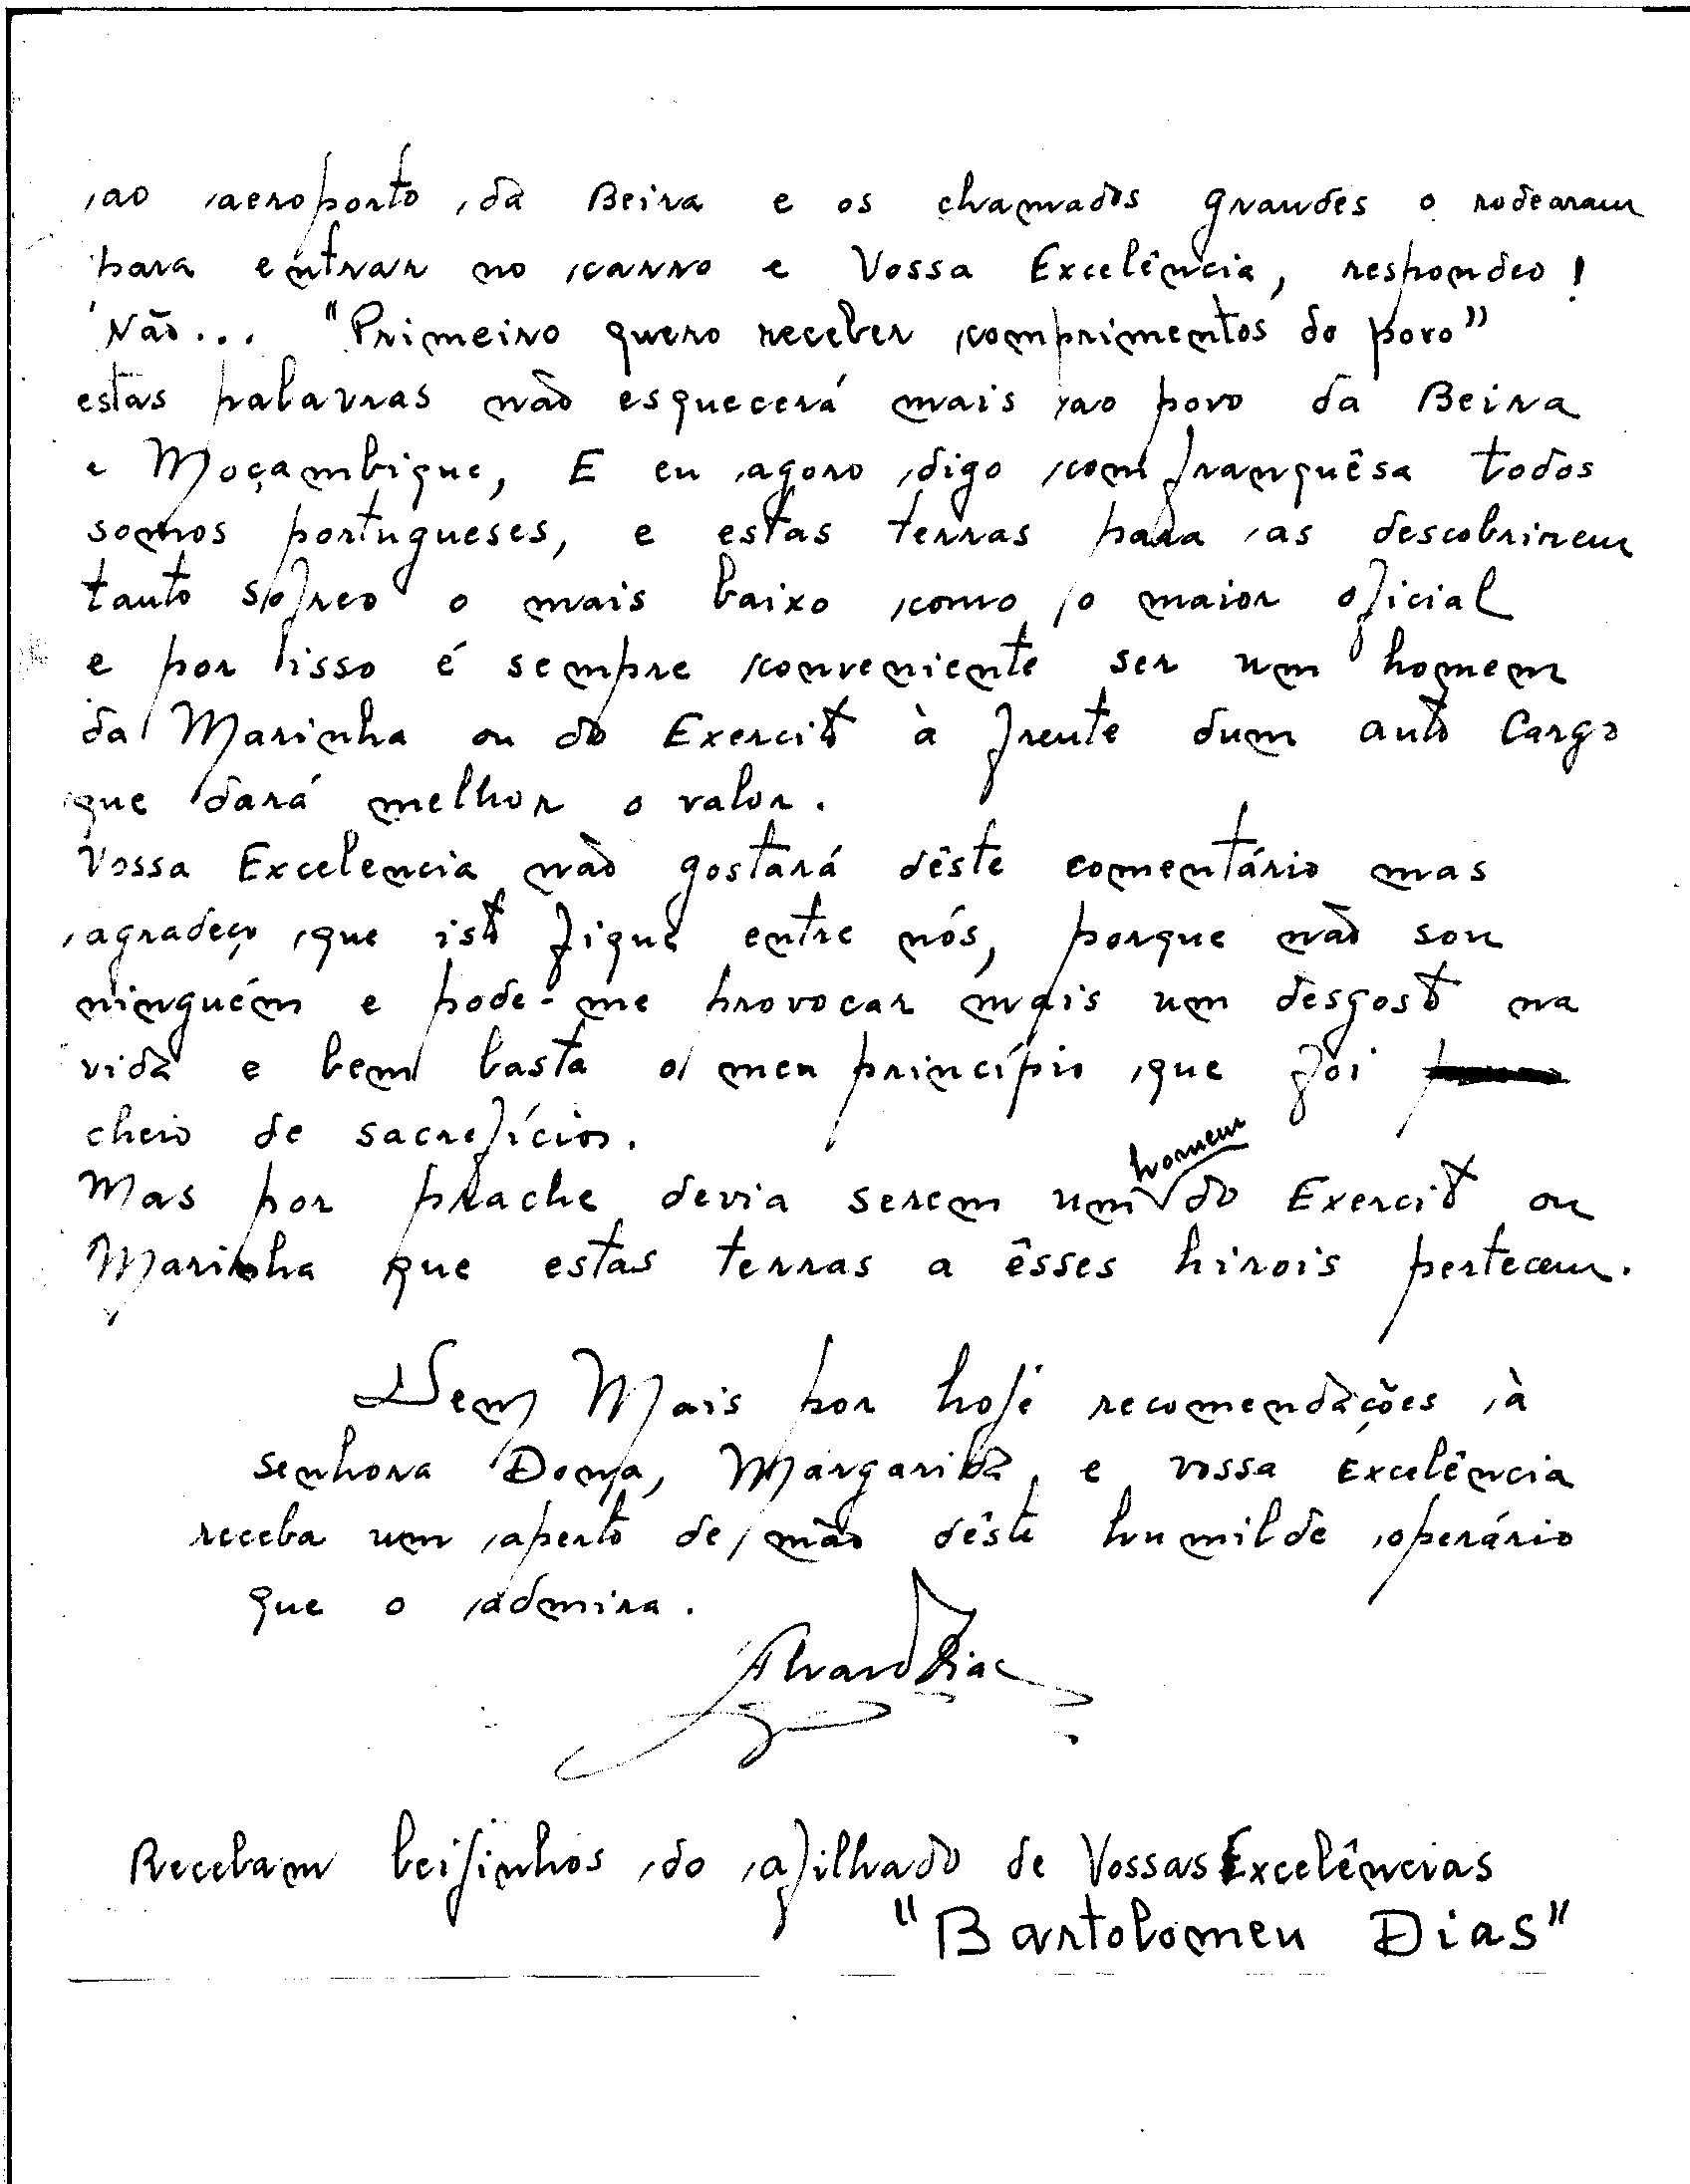 ao aeroporto da Beira e os chamados grandes o rodearam
para entrar no carro e Vossa Excelência, respondeo!
Não... "Primeiro quero receber comprimentos do povo"
estas palavras não esquecerá mais ao povo da Beira
e Moçambique, E eu agoro digo com franquêsa todos
somos portugueses, e estas terras para as descobrirem
tanto sofreo o mais baixo como o maior oficial
e por isso é sempre conveniente ser um homem
da Marinha ou do Exercito à frente dum auto Cargo
que dará melhor o valor.
Vossa Excelencia não gostará dêste comentário mas
agradeço que isto fique entre nós, porque não sou
ninguém e pode-me provocar mais um desgosto na
vida e bem basta o meu princípio que foi
cheio de sacrefícios.
Mas por prache devia serem um homem do Exercito ou
Marinha que estas terras a êsses hirois pertecem.
Sem Mais por hoje recomendações à
senhora Dona, Margarida, e vossa Excelência
receba um aperto de mão dêste humilde operário
que o admira.
Alvaro Dias
Recebam beijinhos do afilhado de Vossas Excelências
"Bartolomeu Dias"